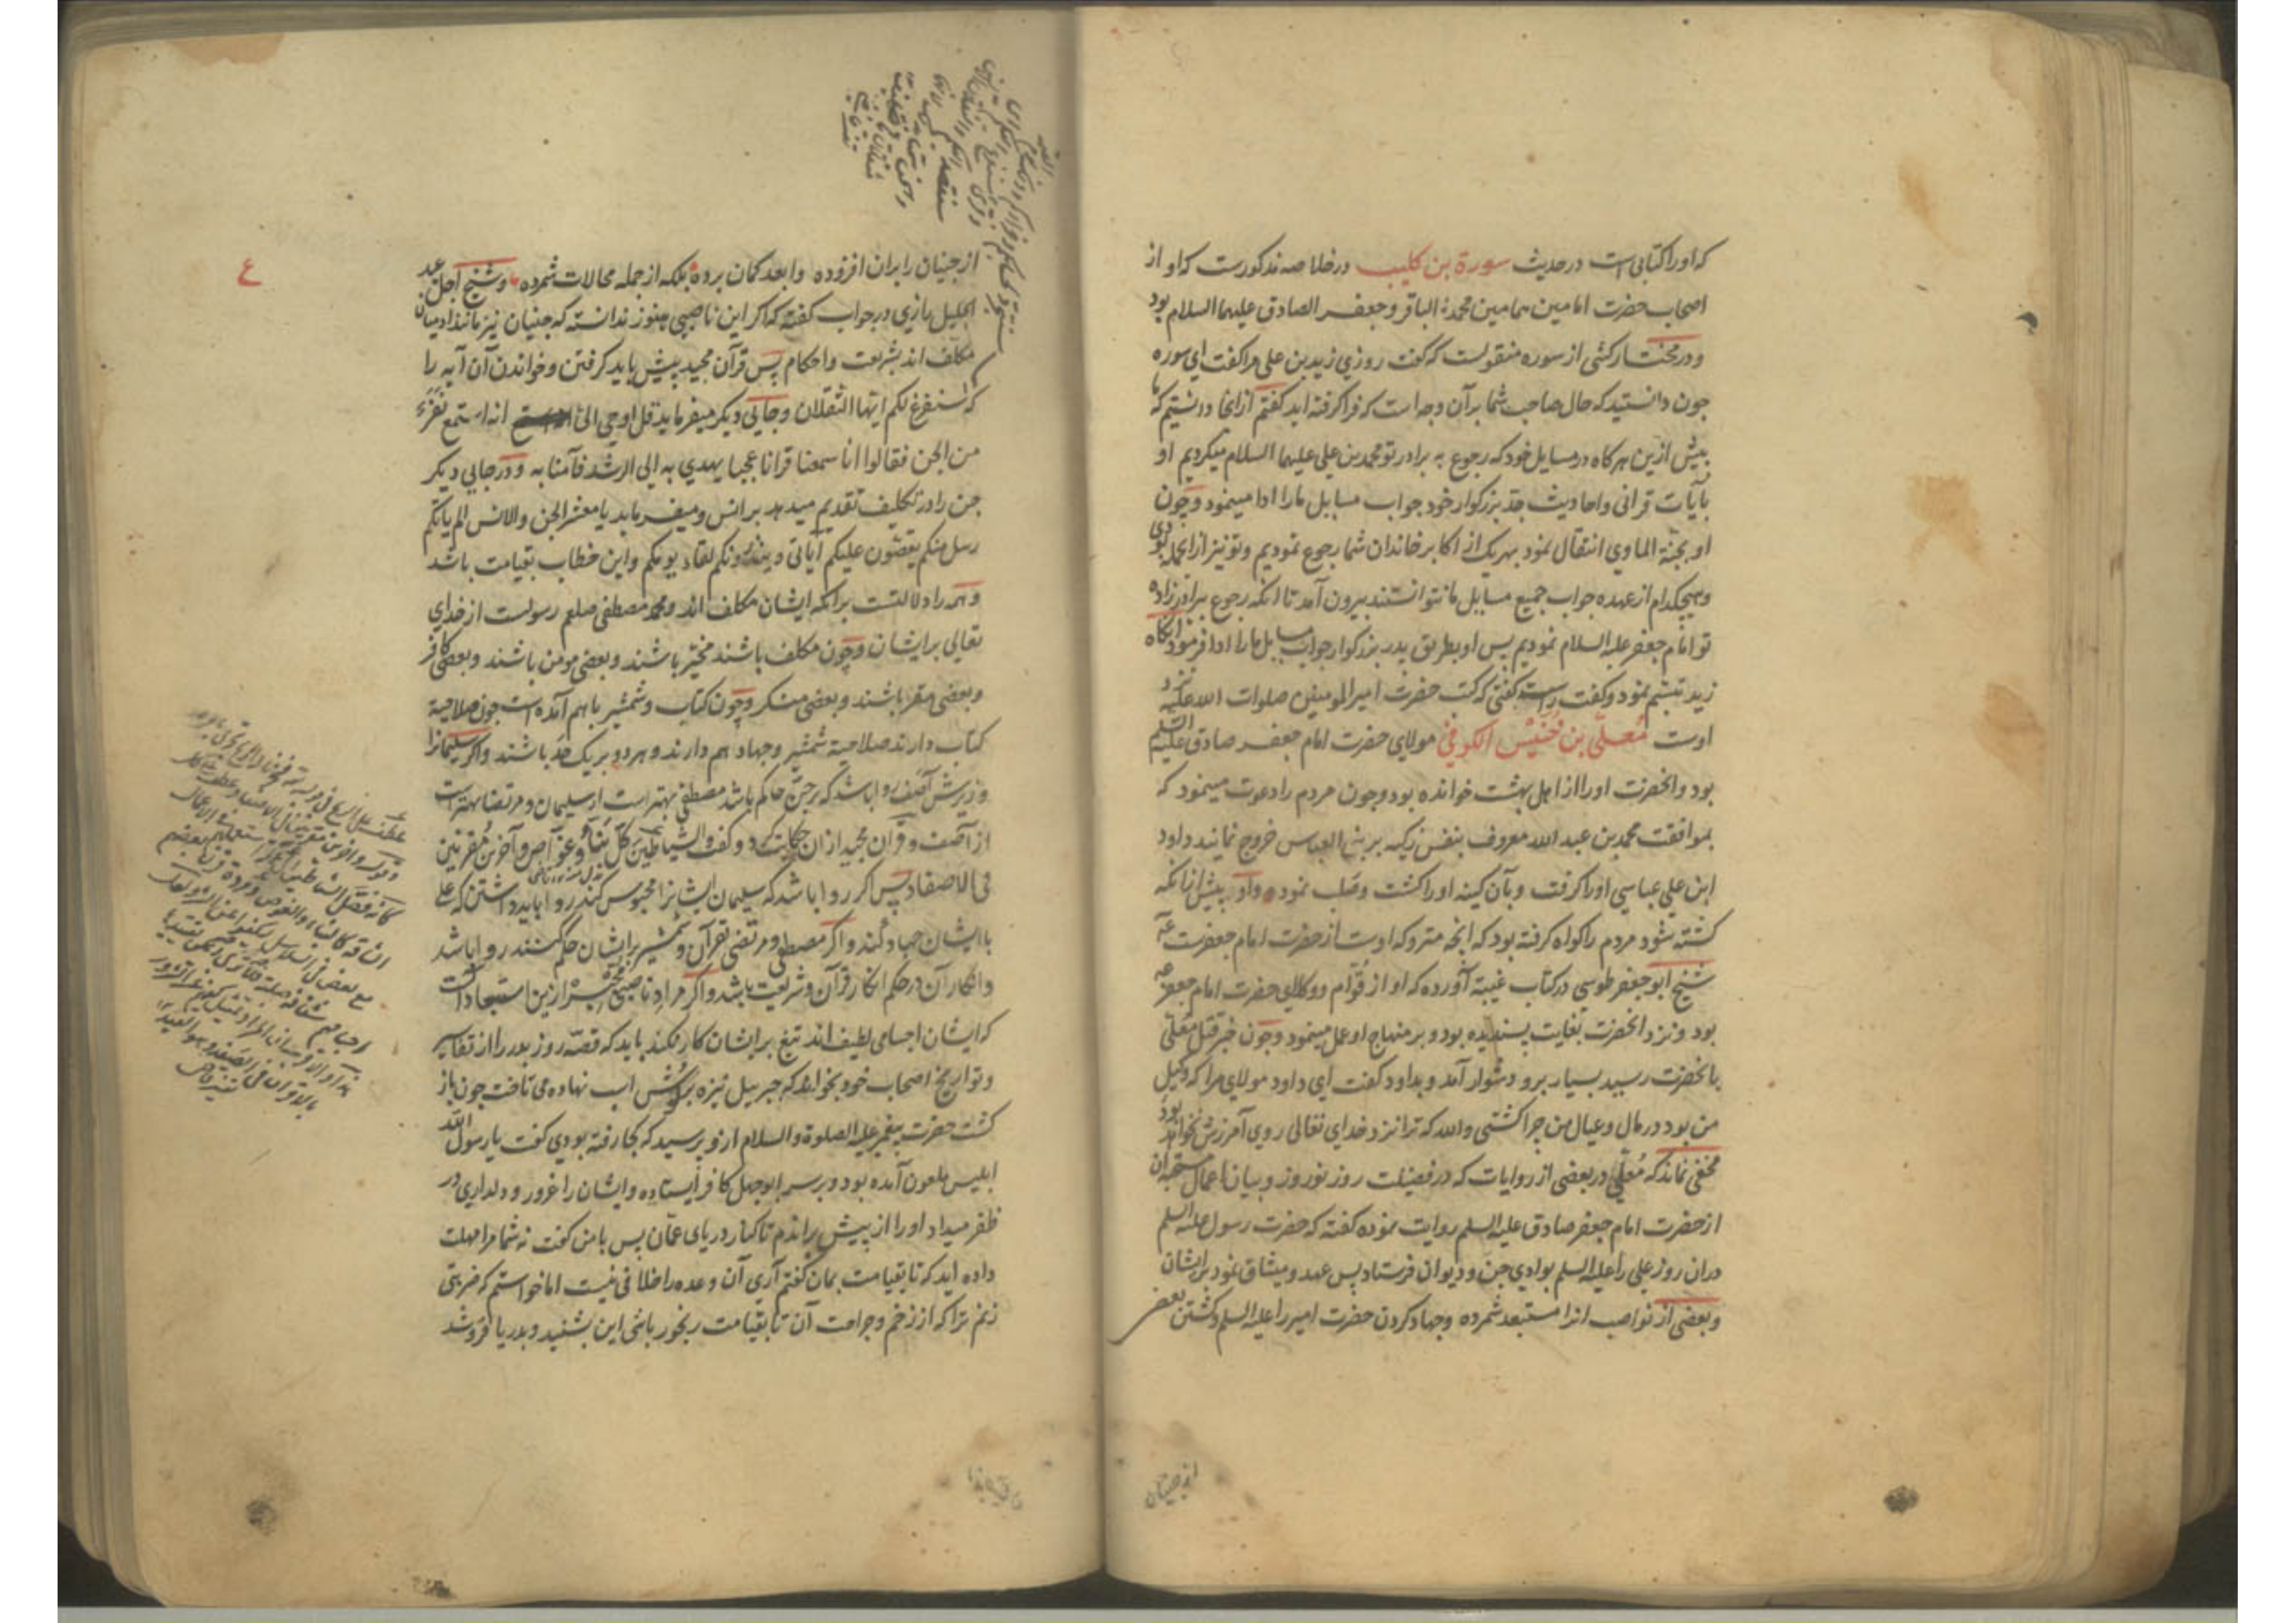 که او را کتابی است در حدیث سورة بن کلیب در خلاصه مذکورست که او از
اصحاب حضرت امامین همامین محمد الباقر و جعفر الصادق علیهما السلام بود
و در مختار کشی از سوره منقولست که گفت روزی زید بن علی مرا کفت ای سوره
چون دانستید که حال صاحب شما بر آن وجه است که فرا کرفته اید کفتم از انجا دانستیم که ما
پیش ازین هر کاه در مسایل خود که رجوع به برادر تو محمد بن علی علیهما السلام میکردیم او
بآیات قرانی و احادیث جد بزرکوار خود جواب مسایل ما را ادا مینمود و چون
او بجنة الماوی انتقال نمود بهر یک از اکابر خاندان شما رجوع نمودیم و تو نیز از انجمله بودی
و هیچکدام از عهده جواب جمیع مسایل ما نتوانستند بیرون آمد تا انکه رجوع ببرادرزاده
تو امام جعفر علیه السلام نمودیم پس او بطریق پدر بزرکوار جواب مسایل ما را ادا فرمود انکاه
زید تبسم نمود و کفت راست کفتی که کتب حضرت امیر المومنین صلوات الله علیه نزد
اوست معلی بن خنیس الکوفی مولای حضرت امام جعفر صادق علیه السلم
بود و انحضرت او را از اهل بهشت خوانده بود و چون مردم را دعوت مینمود که
بموافقت محمد بن عبد الله معروف بنفس زکیه بر بنی العباس خروج نمایند داود
ابن علی عباسی او را کرفت و بآن کینه او را کشت و صلب نمود و او پیش از انکه
کشته شود مردم را کواه کرفته بود که انچه متروکه اوست از حضرت امام جعفرست
شیخ ابو جعفر طوسی در کتاب غیبة آورده که او از قوام و وکلای حضرت امام جعفر
بود و نزد انحضرت بغایت پسندیده بود و بر منهاج او عمل مینمود و چون خبر قتل معلی
بانحضرت رسید بسیار برو دشوار آمد و بداود کفت ای داود مولای مرا که وکیل
من بود در مال و عیال من چرا کشتی والله که ترا نزد خدای تعالی روی آمرزش نخواهد بود
مخفی نماند که معلی در بعضی از روایات که در فضیلت روز نوروز و بیان اعمال مستحبه آن
از حضرت امام جعفر صادق علیه السلم روایت نموده کفته که حضرت رسول علیه السلم
در آن روز علی را علیه السلم بوادی جن و دیوان فرستاد پس عهد و میثاق نمود بر ایشان
و بعضی از نواصب انرا مستبعد شمرده و جهاد کردن حضرت امیر را علیه السلم و کشتن بعضی
از جنیان
از جنیان را بران افزوده و ابعد کمان برده بلکه از جمله محالات شمرده و شیخ اجل عبد
الجلیل رازی در جواب کفته که اکر این ناصبی هنوز ندانسته که جنیان نیز مانند ادمیان
مکلف اند بشریعت و احکام پس قرآن مجید پیش باید کرفتن و خواندن آن آیه را
که سنفرغ لکم ایها الثقلان و جایی دیکر میفرماید قل اوحی الی انه استمع نفر
من الجن فقالوا انا سمعنا قرانا عجبا یهدی به الی الرشد فآمنا به و در جایی دیکر
جن را در تکلیف تقدیم میدهد بر انس و میفرماید یا معشر الجن و الانس الم یاتکم
رسل منکم یقصون علیکم آیاتی و ینذرونکم لقاء یومکم و این خطاب بقیامت باشد
و همه را دلالتست بر انکه ایشان مکلف اند و محمد مصطفی صلعم رسولست از خدای
تعالی بر ایشان و چون مکلف باشند مخیر باشند و بعضی مومن باشند و بعضی کافر
و بعضی مقر باشند و بعضی منکر و چون کتاب و شمشیر باهم آمده است چون صلاحیة
کتاب دارند صلاحیة شمشیر و جهاد هم دارند و هر دو بر یک حد باشند و اکر سلیمانرا
و وزیرش آصف روا باشد که بر جن حاکم باشد مصطفی بهتر است از سلیمان و مرتضا بهتر است
از آصف و قرآن مجید از ان حکایت کرد و کفت و الشیاطین کل بناء و غواص و آخرین مقرنین
فی الاصفاد پس اکر روا باشد که سلیمان ایشانرا محبوس کند روا باید داشتن که علی
با ایشان جهاد کند و اکر مصطفی و مرتضی بقرآن و شمشیر بر ایشان حکم کنند روا باشد
و انکار آن در حکم انکار قرآن و شریعت باشد و اکر مراد ناصبی ازین استبعاد آنست
که ایشان اجسامی لطیف اند تیغ بر ایشان کار نکند باید که قصه روز بدر را از تفاسیر
و تواریخ اصحاب خود بخواند که جبریل نیزه بر کش اب نهاده می تاخت چون باز
کشت حضرت پیغمبر علیه الصلوة و السلام ازو پرسید که کجا رفته بودی کفت یا رسول الله
ابلیس ملعون آمده بود و بر سر ابوجهل کافر ایستاده و ایشان را غرور و دلداری در
ظفر میداد او را از پیش راندم تا کنار دریای عمان پس با من کفت نه شما مرا مهلت
داده اید که تا بقیامت بمان کفتم آری آن وعده را خلافی نیست اما خواستم که ضربتی
زنم ترا که از زخم و جراحت آن تا بقیامت رنجور باشی این بشنید و بدریا فرو شد